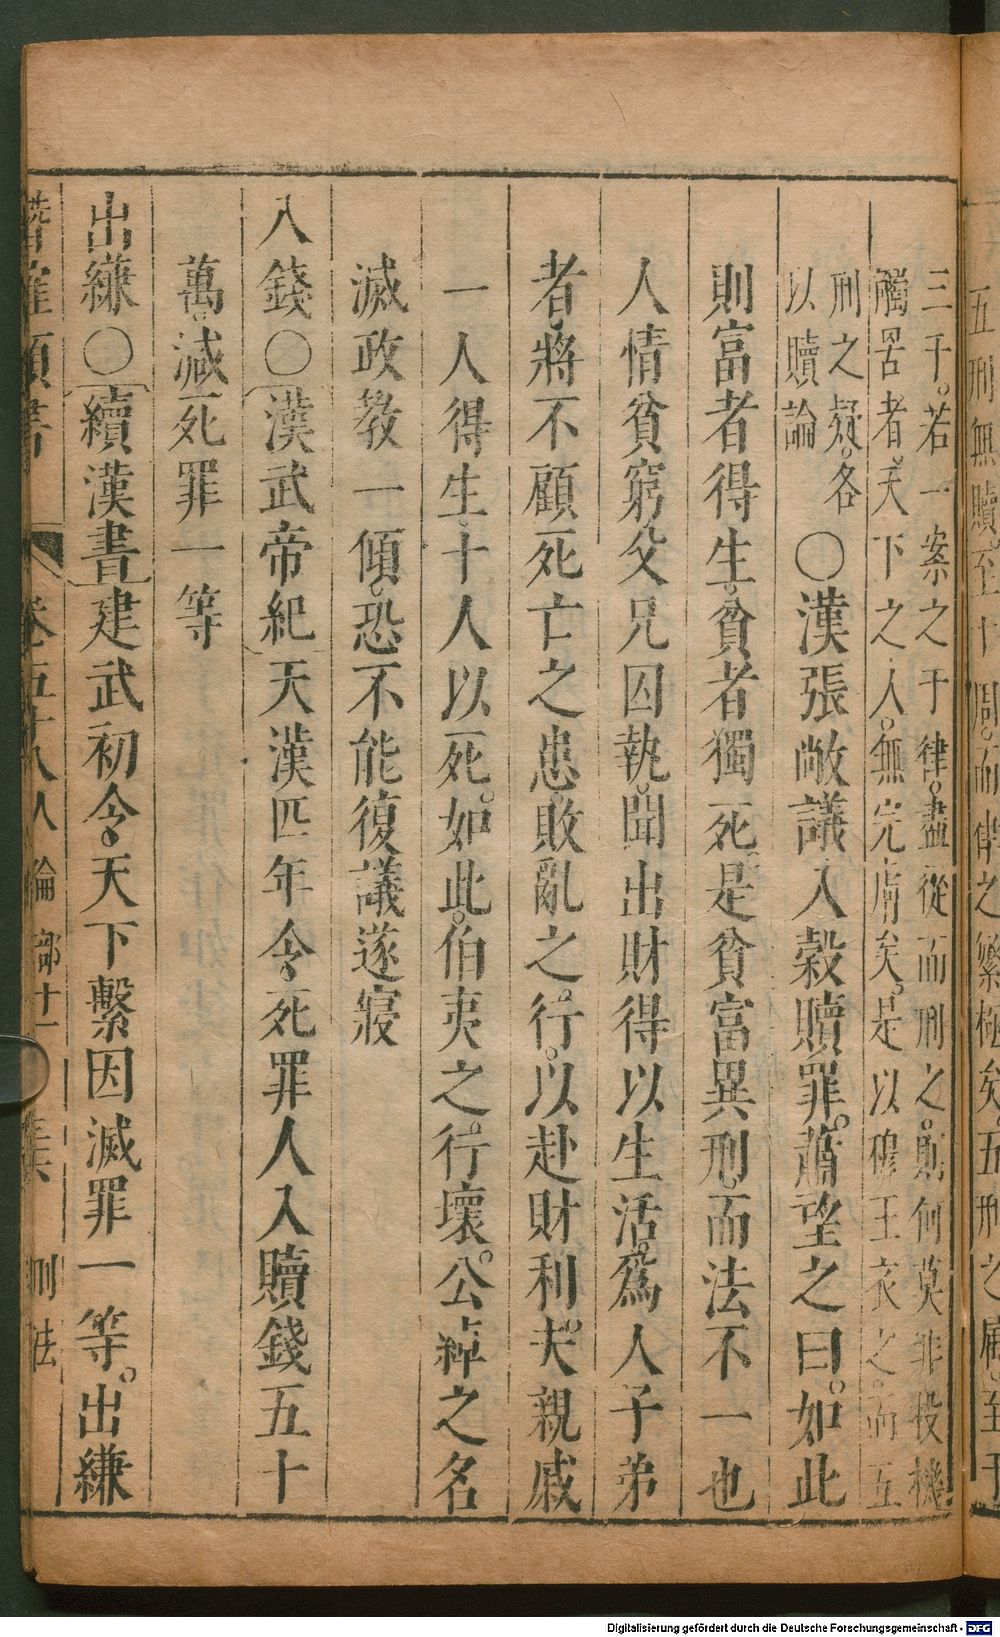 五刑無贖至十周而律之繁極矣五刑之屬至于
三千。若一案之于律。盡從而刑之。則何莫非投機
觸罟者。天下之人。無完膚矣。是以穆王哀之。而五
刑之疑。各
以贖論
○漢張敞議入穀贖罪。蕭望之曰。如此
則富者得生。貧者獨死。是貧富異刑。而法不一也
人情貧窮父兄囚執。聞出財得以生活。爲人子弟
者將不顧死亡之患敗亂之行。以赴財利。夫親戚
一人得生十人以死。如此。伯夷之行壞。公綽之名
滅政教一傾。恐不能復議遂寢
入錢○漢武帝紀天漢四年令死罪人入贖錢五十
萬減死罪一等
出縑○續漢書建武初令天下繫囚滅罪一等。出縑
潛確類書 卷五十八人倫部十一 集 刑法
Digitalisierung gefördert durch die Deutsche Forschungsgemeinschaft - DFG